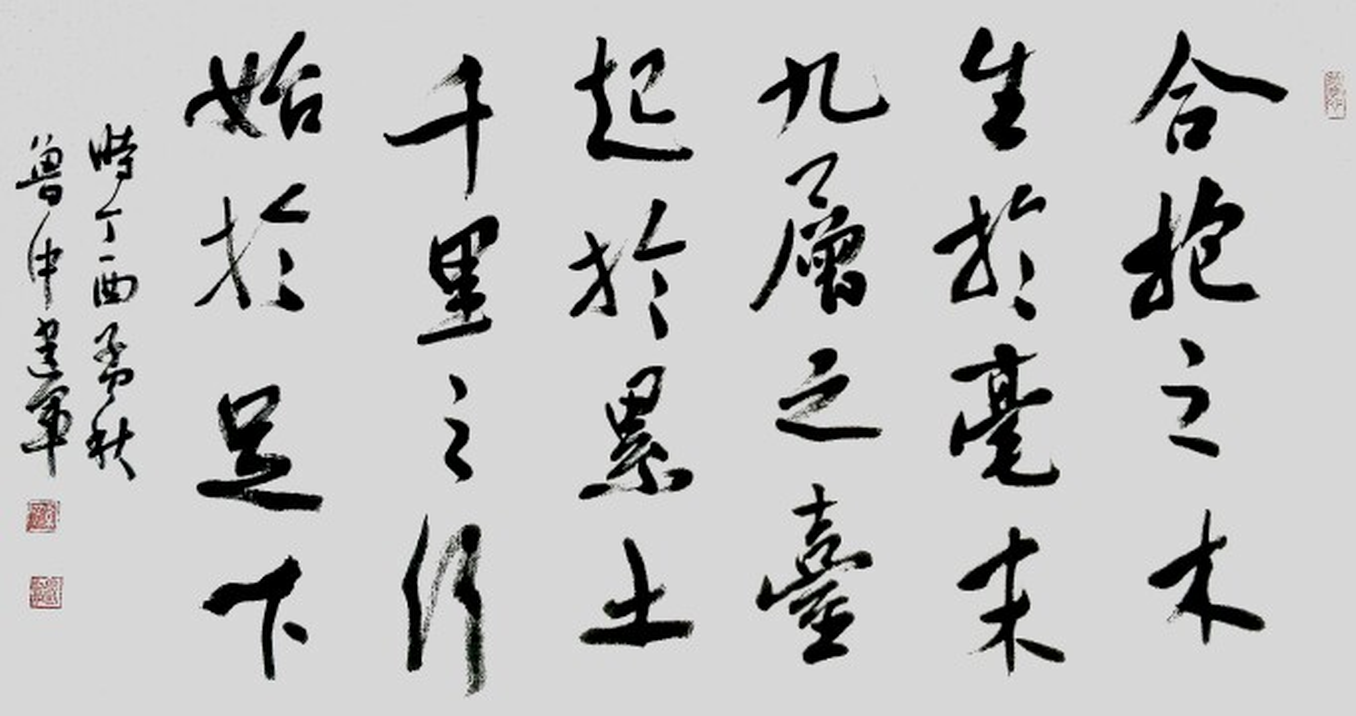 合抱之木
生於毫末
九層之臺
起於累土
千里之行
始於足下
時丁酉孟秋
魯中建軍